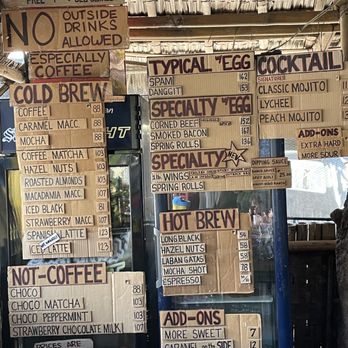 NO OUTSIDE
DRINKS
ALLOWED
ESPECIALLY
COFFEE
COLD BREW
COFFEE 88
CARAMEL MACC 88
MOCHA 88
COFFEE MATCHA 103
HAZEL NUTS 103
ROASTED ALMONDS 103
MACADAMIA MACC 103
ICED BLACK
STRAWBERRY MACC 107
SPANISH LATTE
ICED LATTE
NOT-COFFEE
CHOCO 88
CHOCO MATCHA 103
CHOCO PEPPERMINT 103
STRAWBERRY CHOCOLATE MILK 107
PRICES ARE
TYPICAL W/EGG
SPAM 162
DANGGIT
SPECIALTY W/EGG
CORNED BEEF 152
SMOKED BACON 167
SPRING ROLLS
SPECIALTY NEW
WINGS
SPRING ROLLS
DIPPING SAUCES
HOT BREW
LONG BLACK
HAZEL NUTS
LABAN GATAS
MOCHA SHOT
ESPRESSO
ADD-ONS
MORE SWEET 7
CARAMEL ON THE SIDE 12
COCKTAIL
SIGNATURES
CLASSIC MOJITO
LYCHEE
PEACH MOJITO
ADD-ONS
EXTRA HARD
MORE SOUR